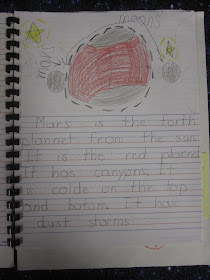 moons
moon
Mars is the forth
plannet from the sun.
It is the red plannet
It has canyons. It
is colde on the top
and botom. It has
dust storms.